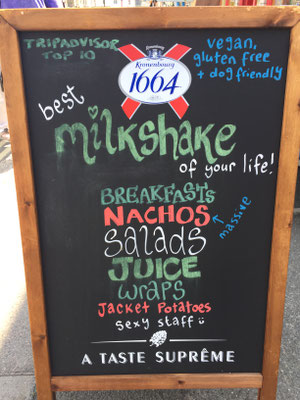 TRIPADVISOR
TOP 10
Kronenbourg
1664
vegan,
gluten free
+ dog friendly
best
milkshake
of your life!
BREAKFASTs
NACHOS
massive
Salads
JUICE
wraps
Jacket Potatoes
Sexy Staff
A TASTE SUPRÊME